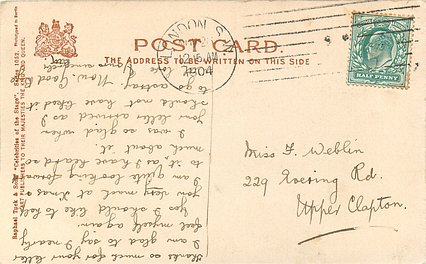 POST CARD.
THE ADDRESS TO BE WRITTEN ON THIS SIDE
LONDON S.
12.15 AM
1904
HALF PENNY
Raphael Tuck & Sons' "Celebrities of the Stage", Series
ART PUBLISHERS TO THEIR MAJESTIES THE KING AND QUEEN.
Miss F. Weblin
229 Evering Rd.
Upper Clapton.
Thanks so much for your letter
I am glad to say I nearly
feel myself again.
Yes I should like to help
you very much at Xmas
I am quite looking forward
to it, as I have heard so
much about it.
I was so glad when
your letter arrived as I
should not have liked it
to go astray. Now, Good
love